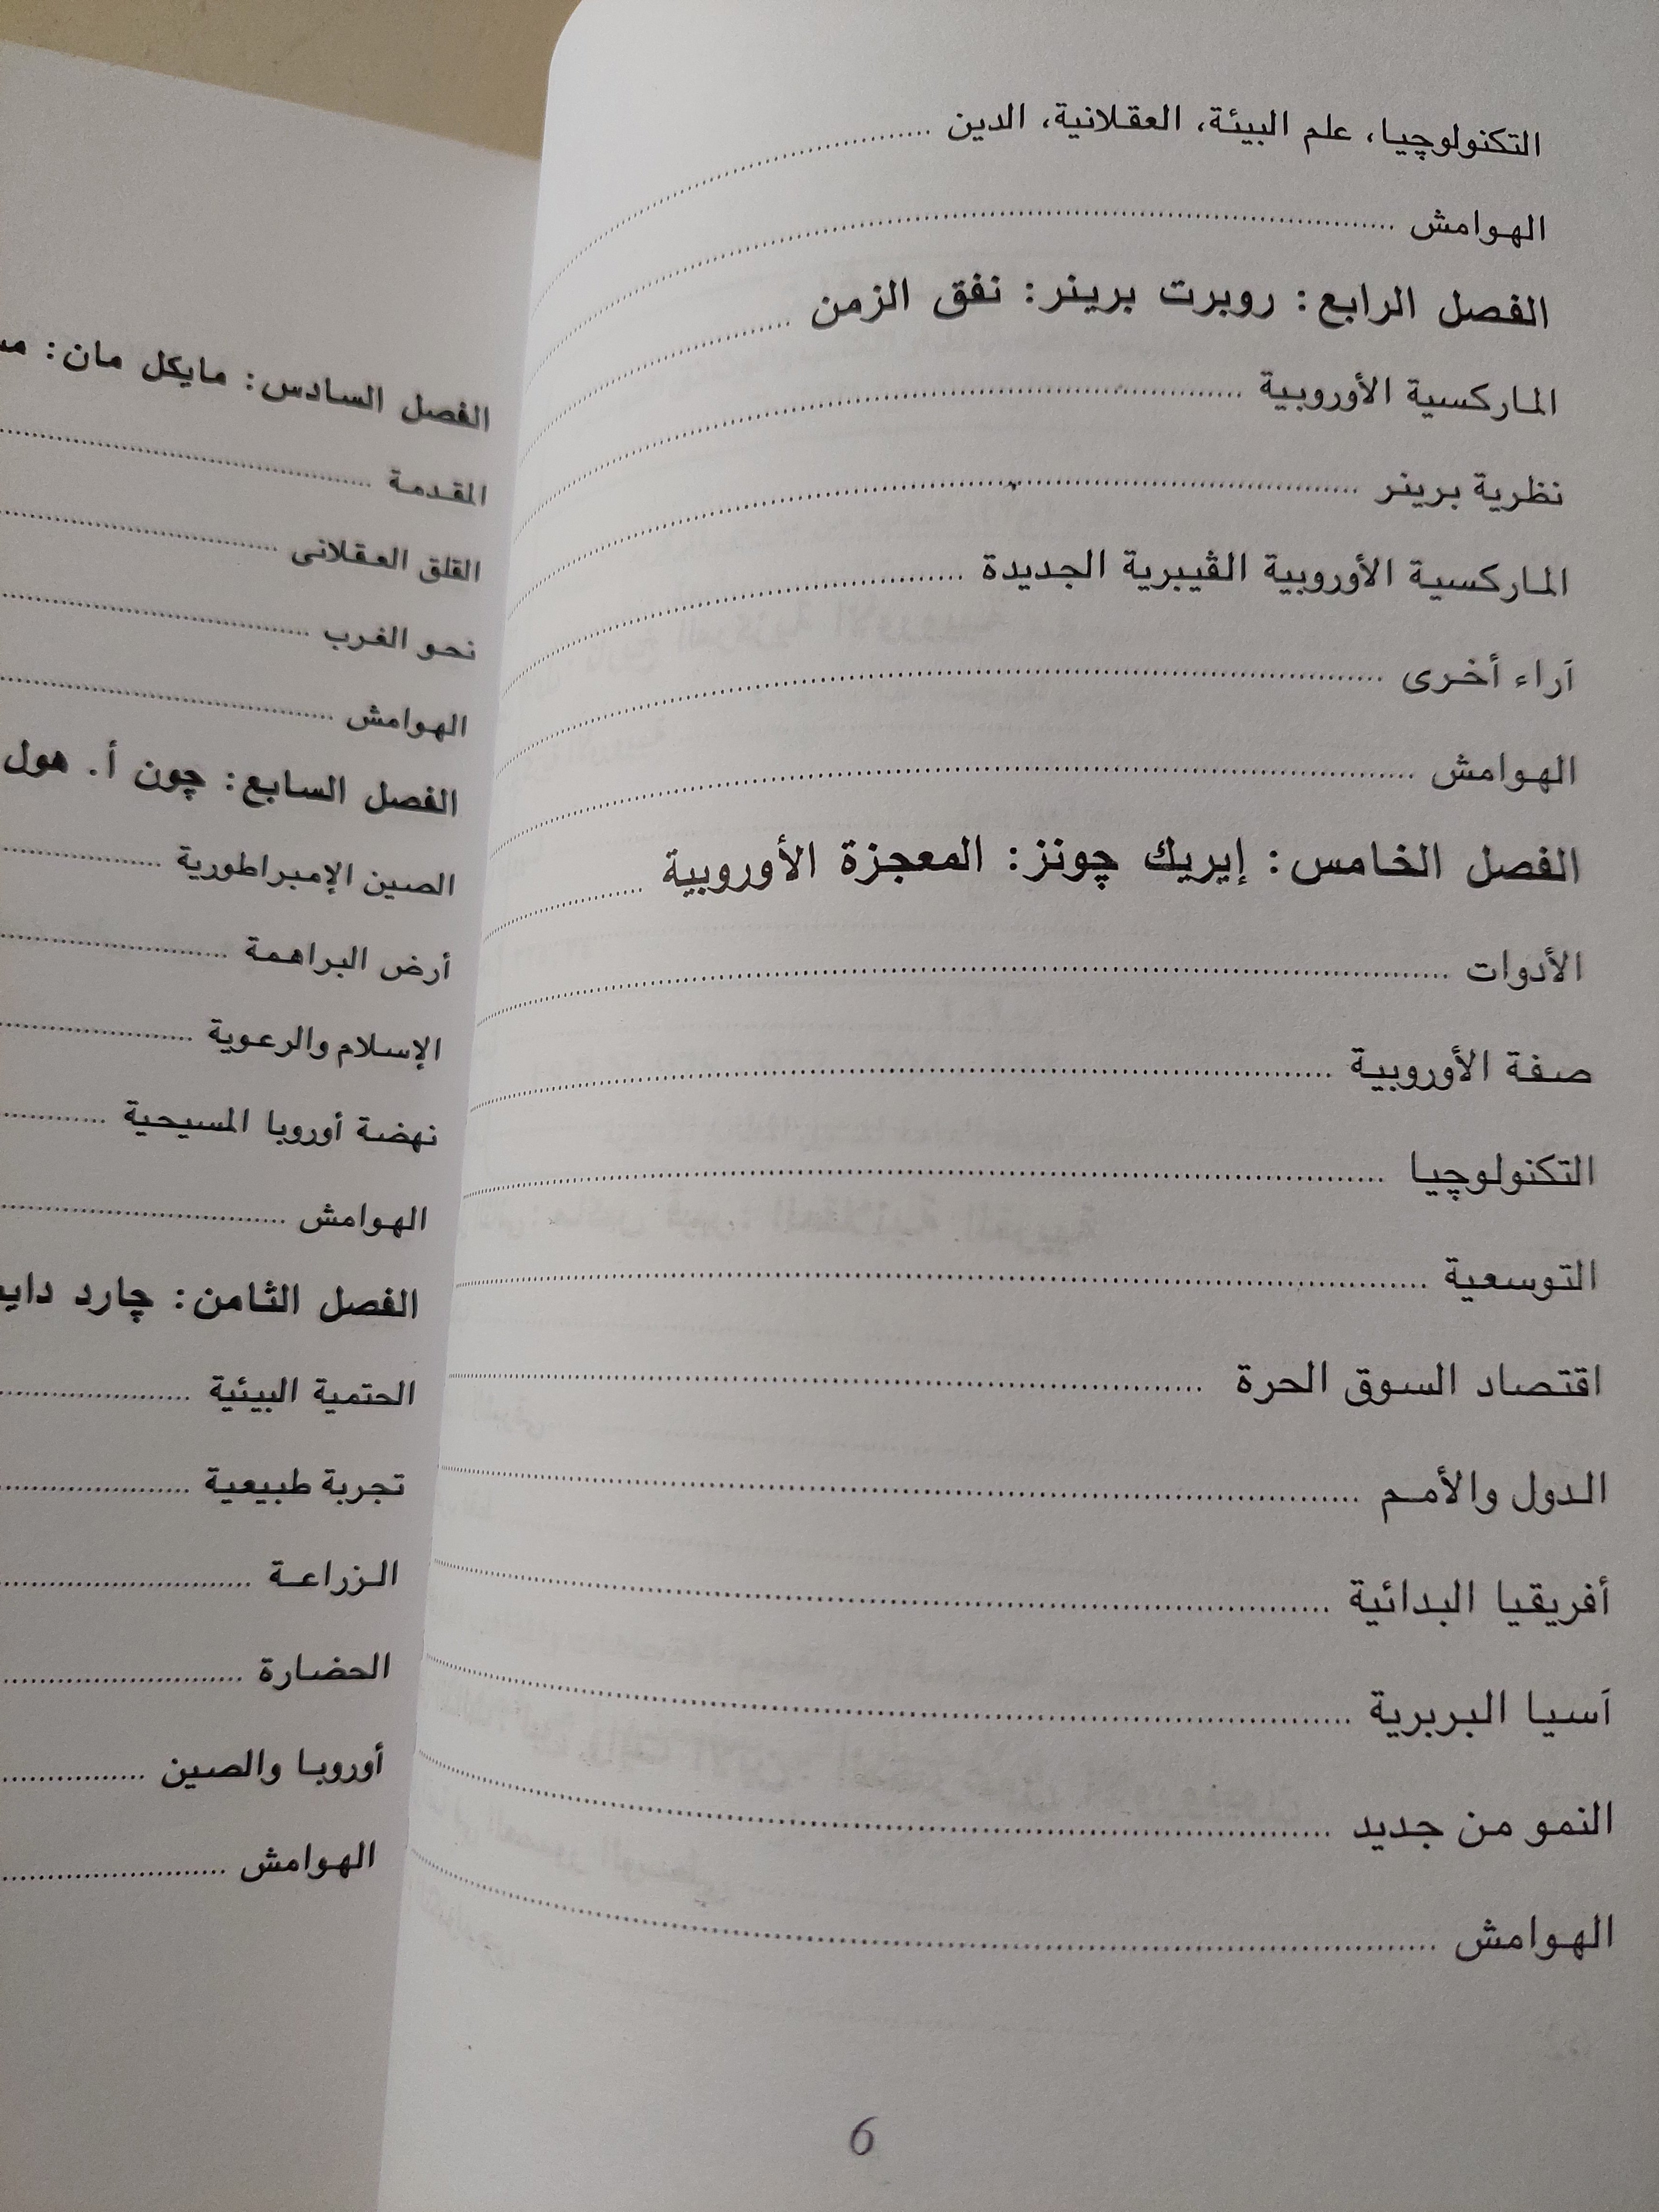 التكنولوچيا، علم البيئة، العقلانية، الدين
الهوامش
الفصل الرابع: روبرت برينر: نفق الزمن
الماركسية الأوروبية
نظرية برينر
الماركسية الأوروبية الڤيبرية الجديدة
آراء أخرى
الهوامش
الفصل الخامس: إيريك چونز: المعجزة الأوروبية
الأدوات
صفة الأوروبية
التكنولوچيا
التوسعية
اقتصاد السوق الحرة
الدول والأمم
أفريقيا البدائية
آسيا البربرية
النمو من جديد
الهوامش
6
الفصل السادس: مايكل مان:
المقدمة
القلق العقلانى
نحو الغرب
الهوامش
الفصل السابع: چون أ. هول
الصين الإمبراطورية
أرض البراهمة
الإسلام والرعوية
نهضة أوروبا المسيحية
الهوامش
الفصل الثامن: چارد
الحتمية البيئية
تجربة طبيعية
الزراعة
الحضارة
أوروبا والصين
الهوامش